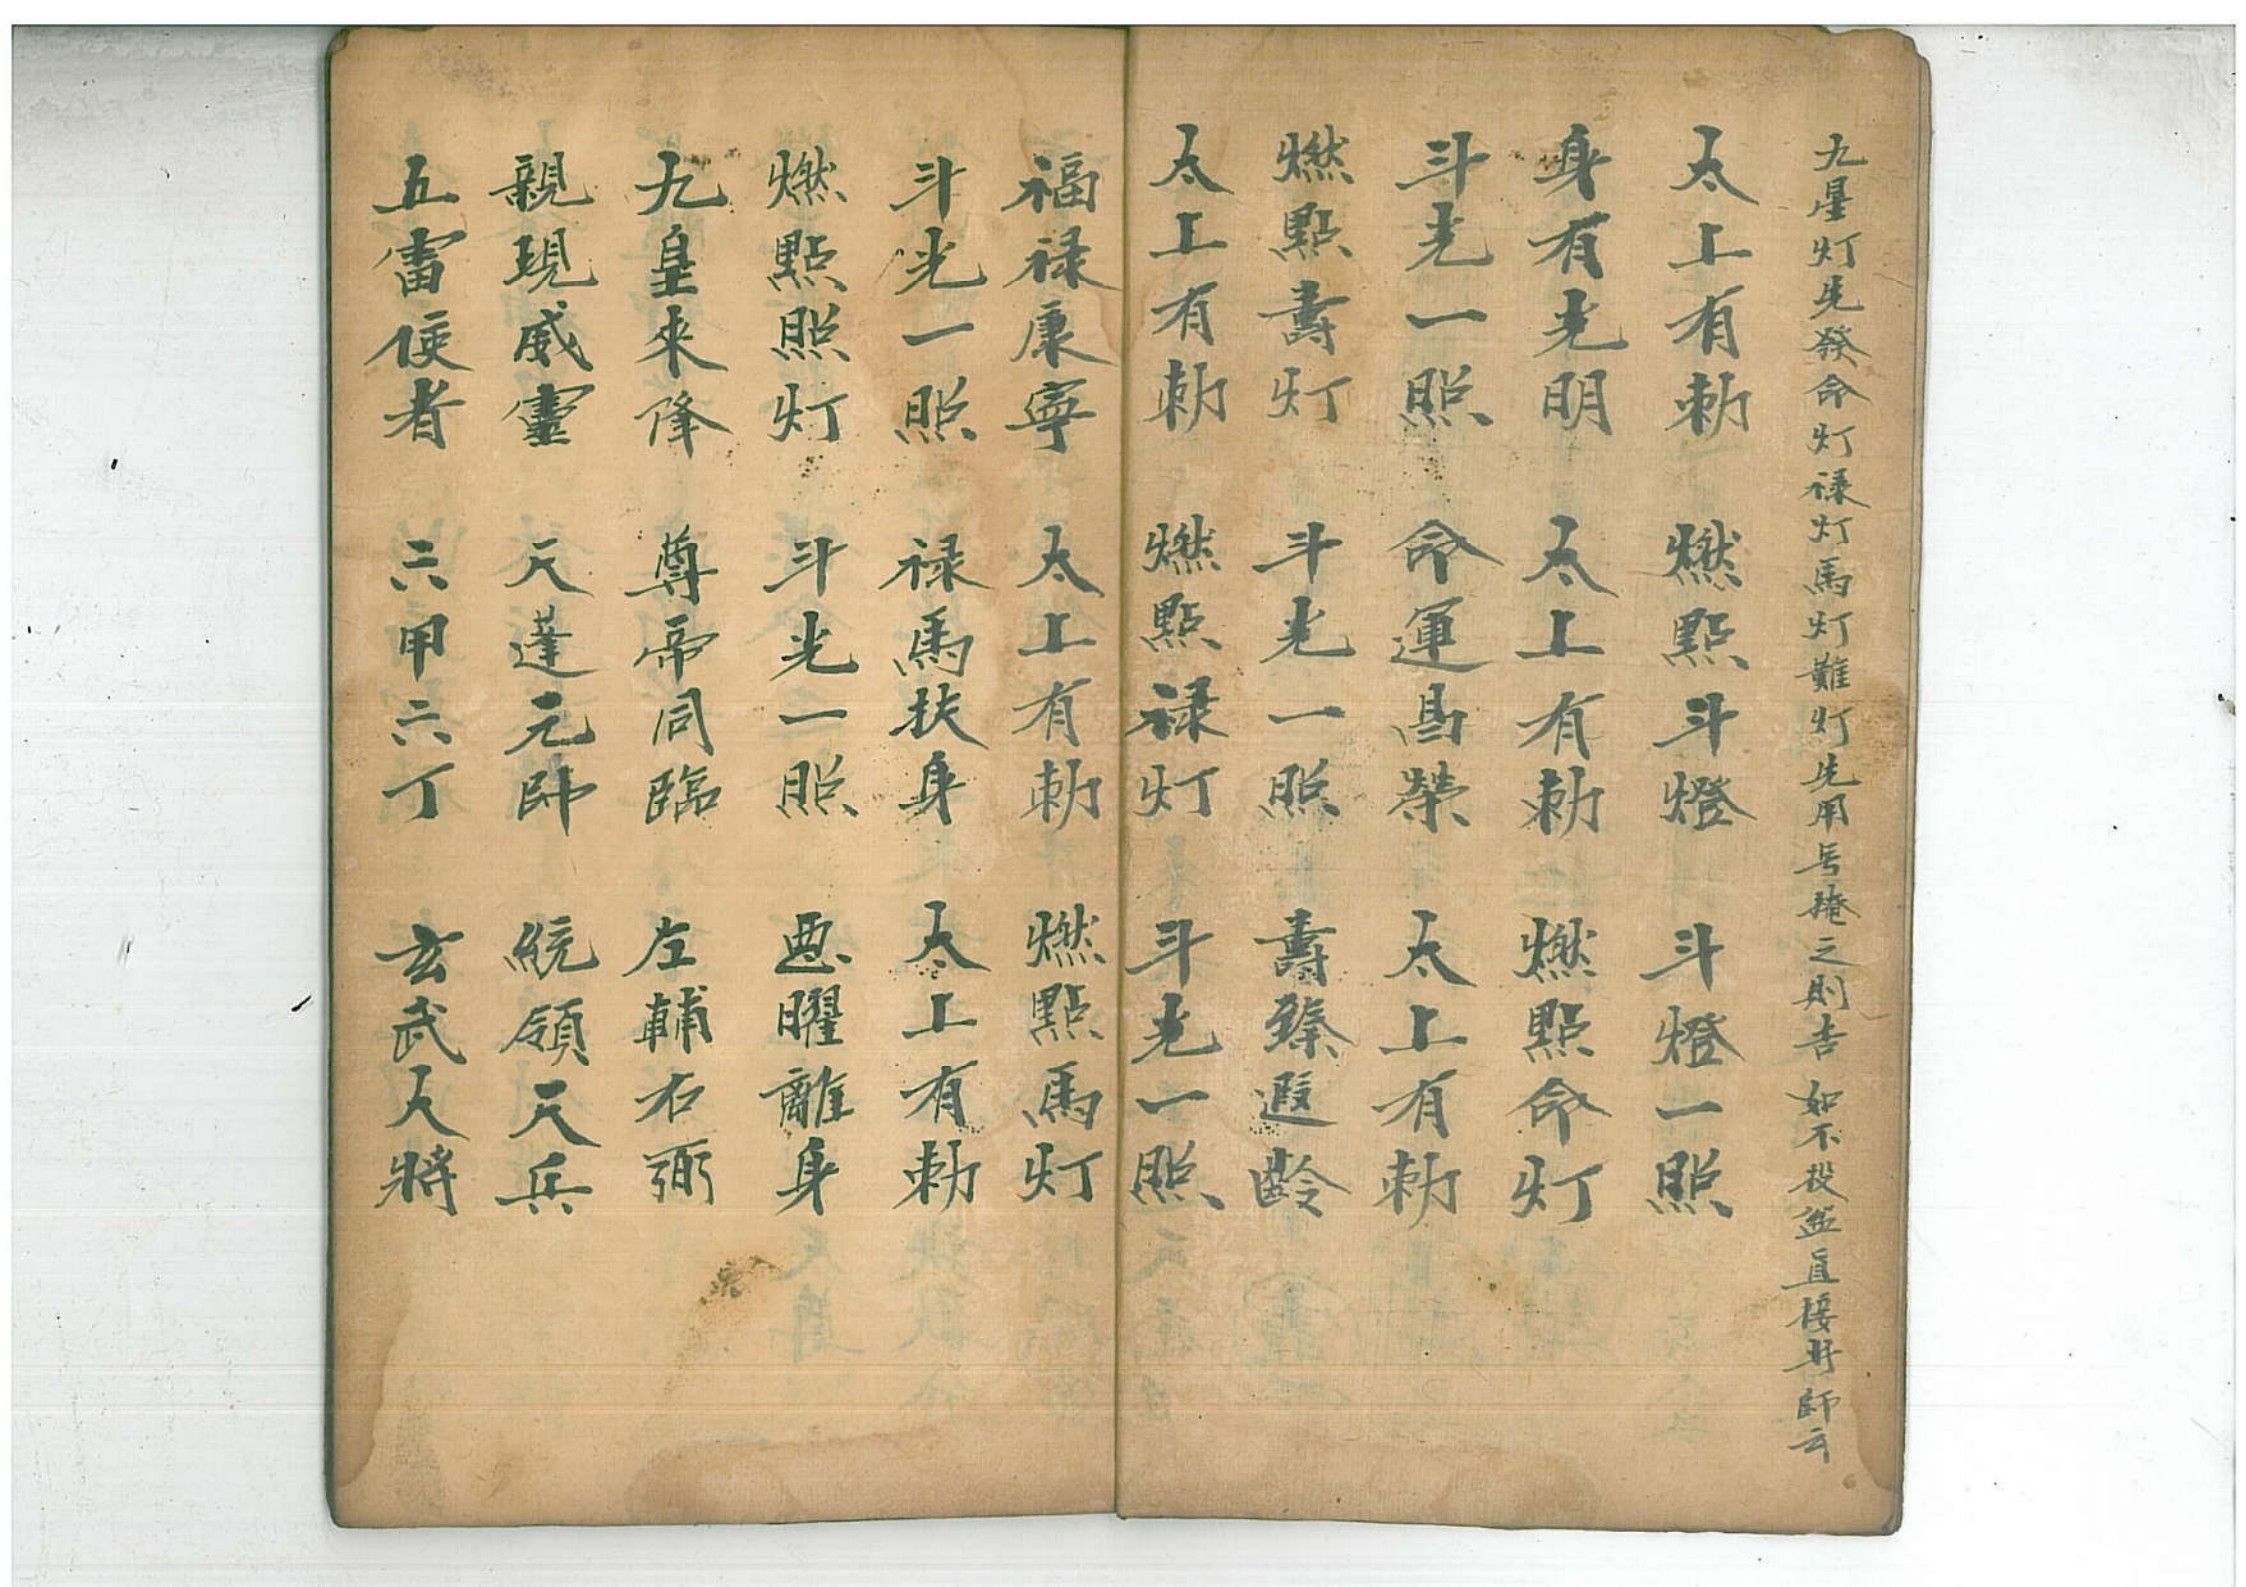 九星灯先發命灯禄灯馬灯難灯先用号掩之則吉 如不投盆直接拜師云
太上有勅 燃點斗燈 斗燈一照
身有光明 太上有勅 燃點命灯
斗光一照 命運昌榮 太上有勅
燃點壽灯 斗光一照 壽臻遐齡
太上有勅 燃點禄灯 斗光一照
福禄康寧 太上有勅 燃點馬灯
斗光一照 禄馬扶身 太上有勅
燃點照灯 斗光一照 悪曜離身
九皇來降 尊帝同臨 左輔右弼
親現威靈 天蓬元帥 統領天兵
五雷使者 六甲六丁 玄武天將